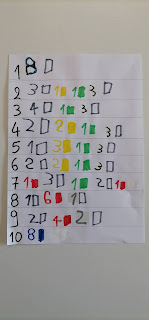 1 8
2 3 1 1 3
3 4 1 3
4 2 2 1 3
5 1 3 1 3
6 2 2 1 3
7 1 3 1 2 1
8 1 6 1
9 2 4 2
10 8